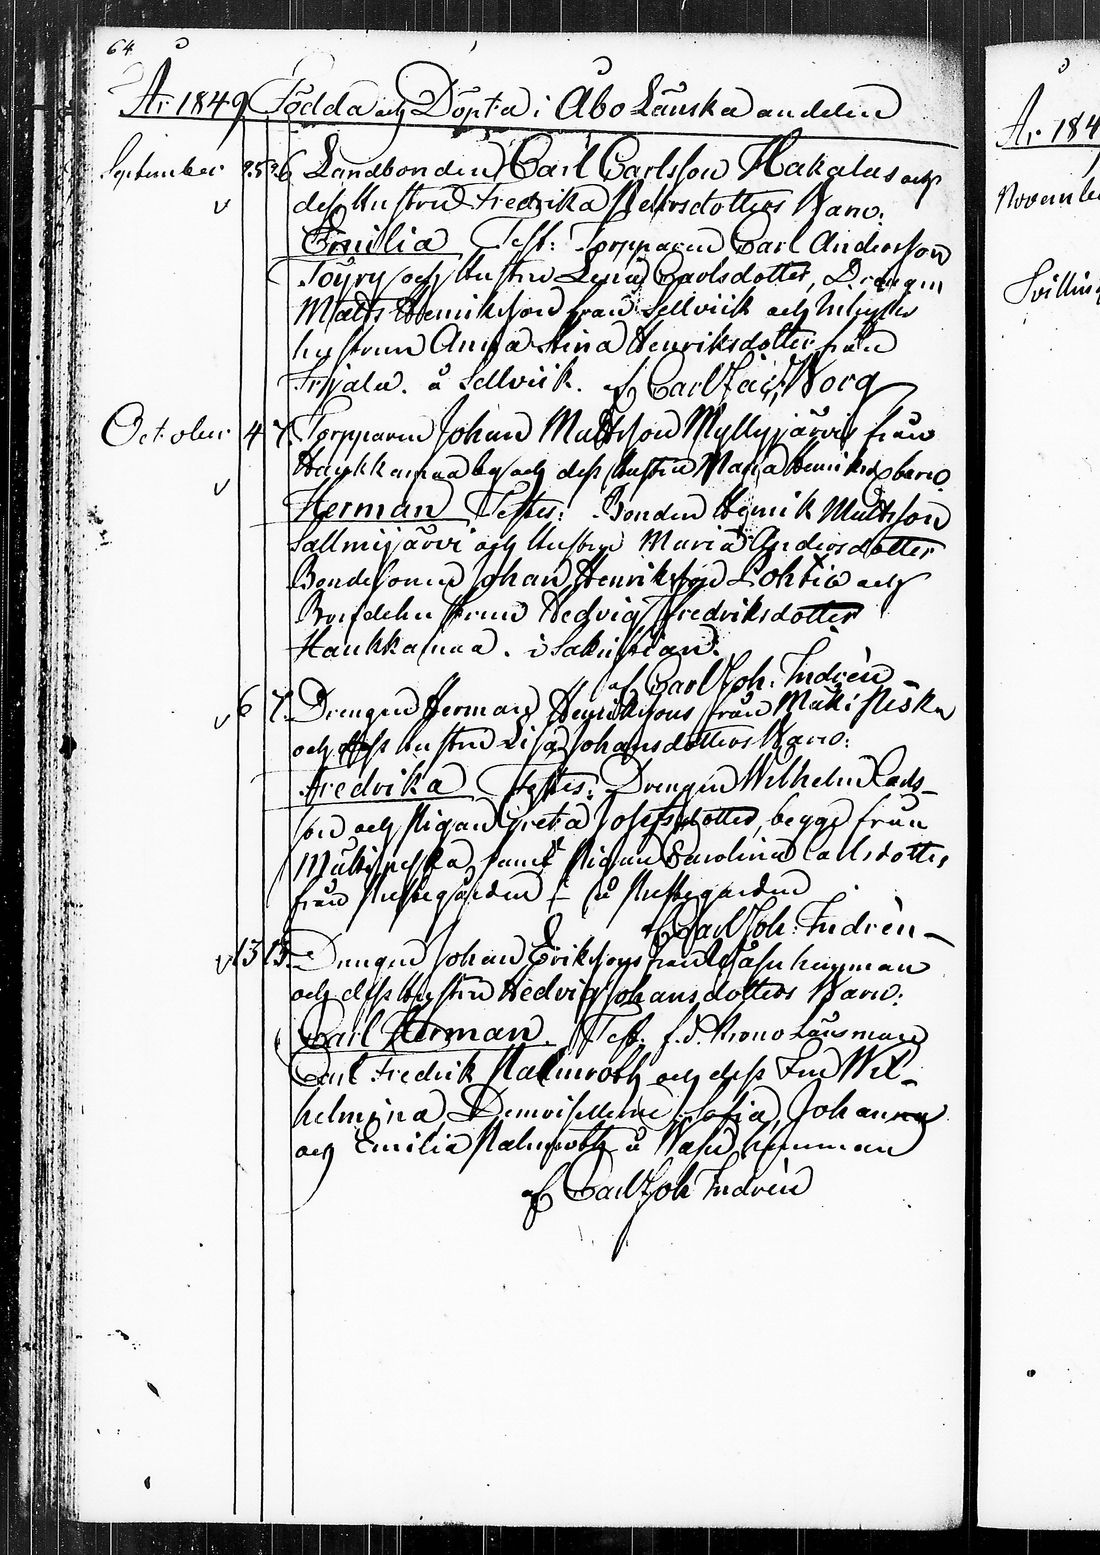 64
År 1849 Födda och Döpta i Åbo Länska andelen
September 25 26 Landbonden Carl Carlsson Hakalas och
dess Hustru Fredrika Petersdotters Barn:
Emilia Test: Torpparen Carl Andersson
Töyry och Hustru Lena Carlsdotter, Drängen
Matts Henriksson från Sellvik och Inhyses
hustrun Anna Stina Henriksdotter från
å Sellvik. af Carl Norg
October 4 7 Torpparen Johan Mattsson Myllyjärvis från
Haukkamaa by och dess Hustru Maria Henriksd. barn
Herman Testes: Bonden Henrik Mattsson
Sallmijärvi och Hustru Maria Andersdotter
Bondesonen Johan Henriksson och
hustrun Hedvig Fredriksdotter
Haukkamaa. i Sakristian.
af Carl Joh: Indrén
6 7. Drengen Herman Henrikssons från Mäki
och dess hustru Lisa Johansdotters Barn:
Fredrika Testes: Drengen Wilhelm Carls-
son och Pigan Greta Josefsdotter, begge från
samt Pigan Carolina Carlsdotter
från Prestegården å Prestegården
af Carl Joh: Indrén
13 13. Drengen Johan Erikssons från hemman
och dess hustru Hedvig Johansdotters Barn:
Carl Herman. Test. f.d. Krono Länsman
Carl Fredrik Malmroth och dess Fru Wil-
helmina, Demoisellerne Sofia, Johanna
och Emilia Malmroth å hemman
af Carl Joh Indrén
År 184
Novembe
Tvilling